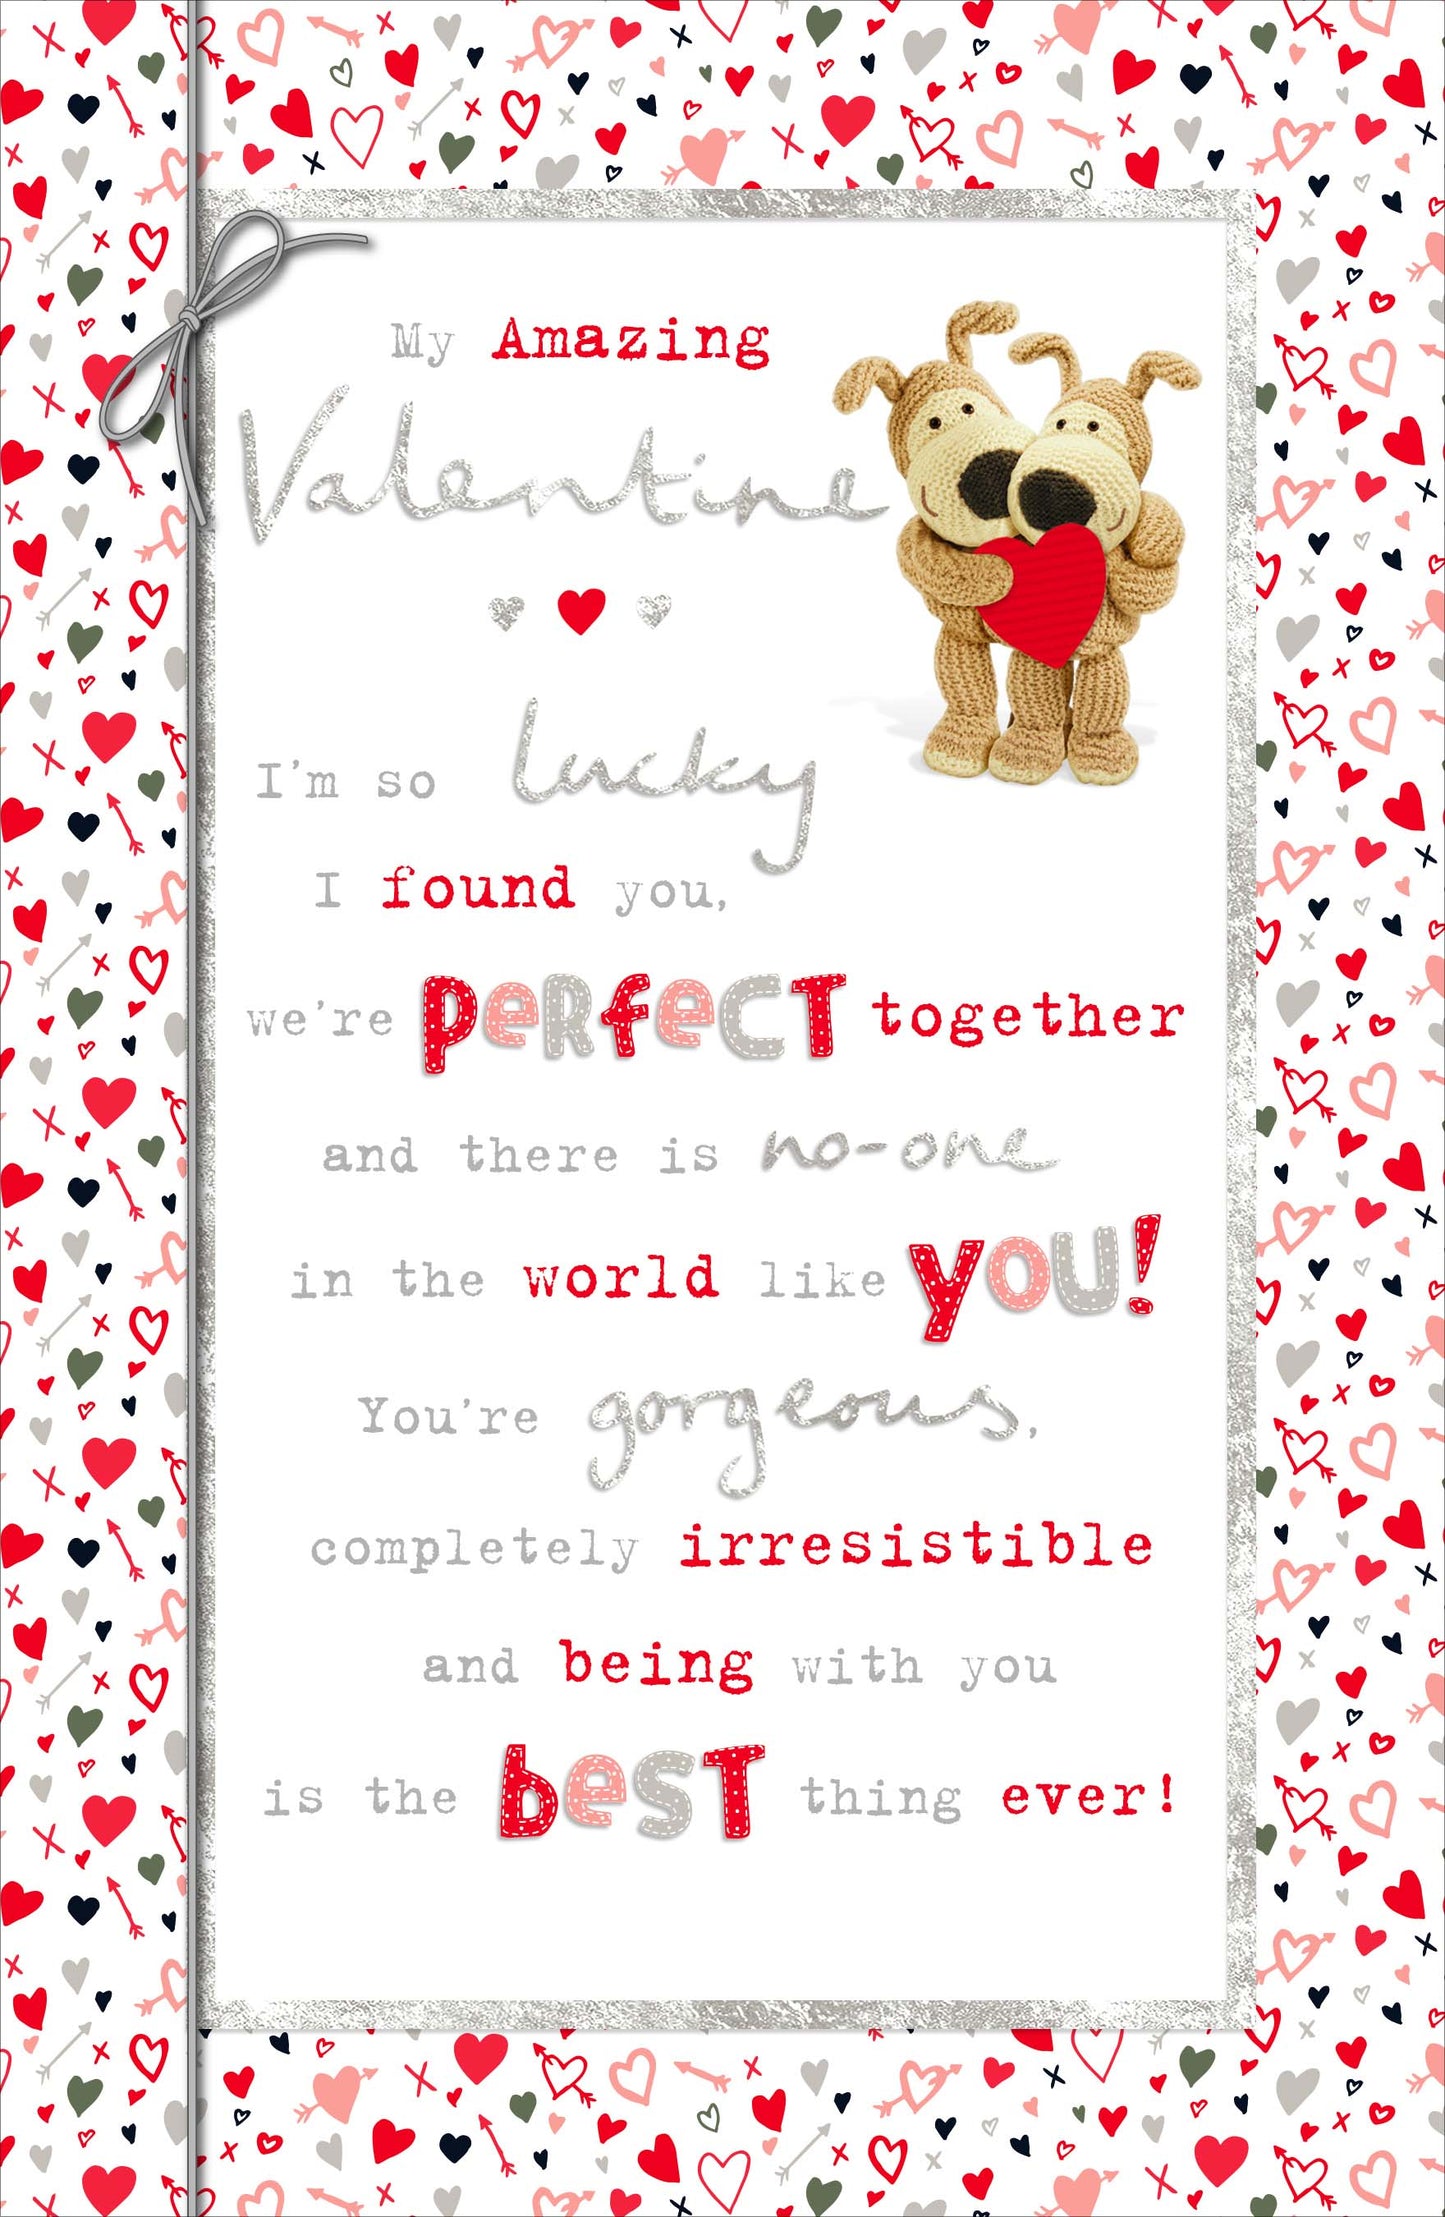 My Amazing
Valentine
I'm so lucky
I found you,
we're perfect together
and there is no-one
in the world like you!
You're gorgeous,
completely irresistible
and being with you
is the best thing ever!